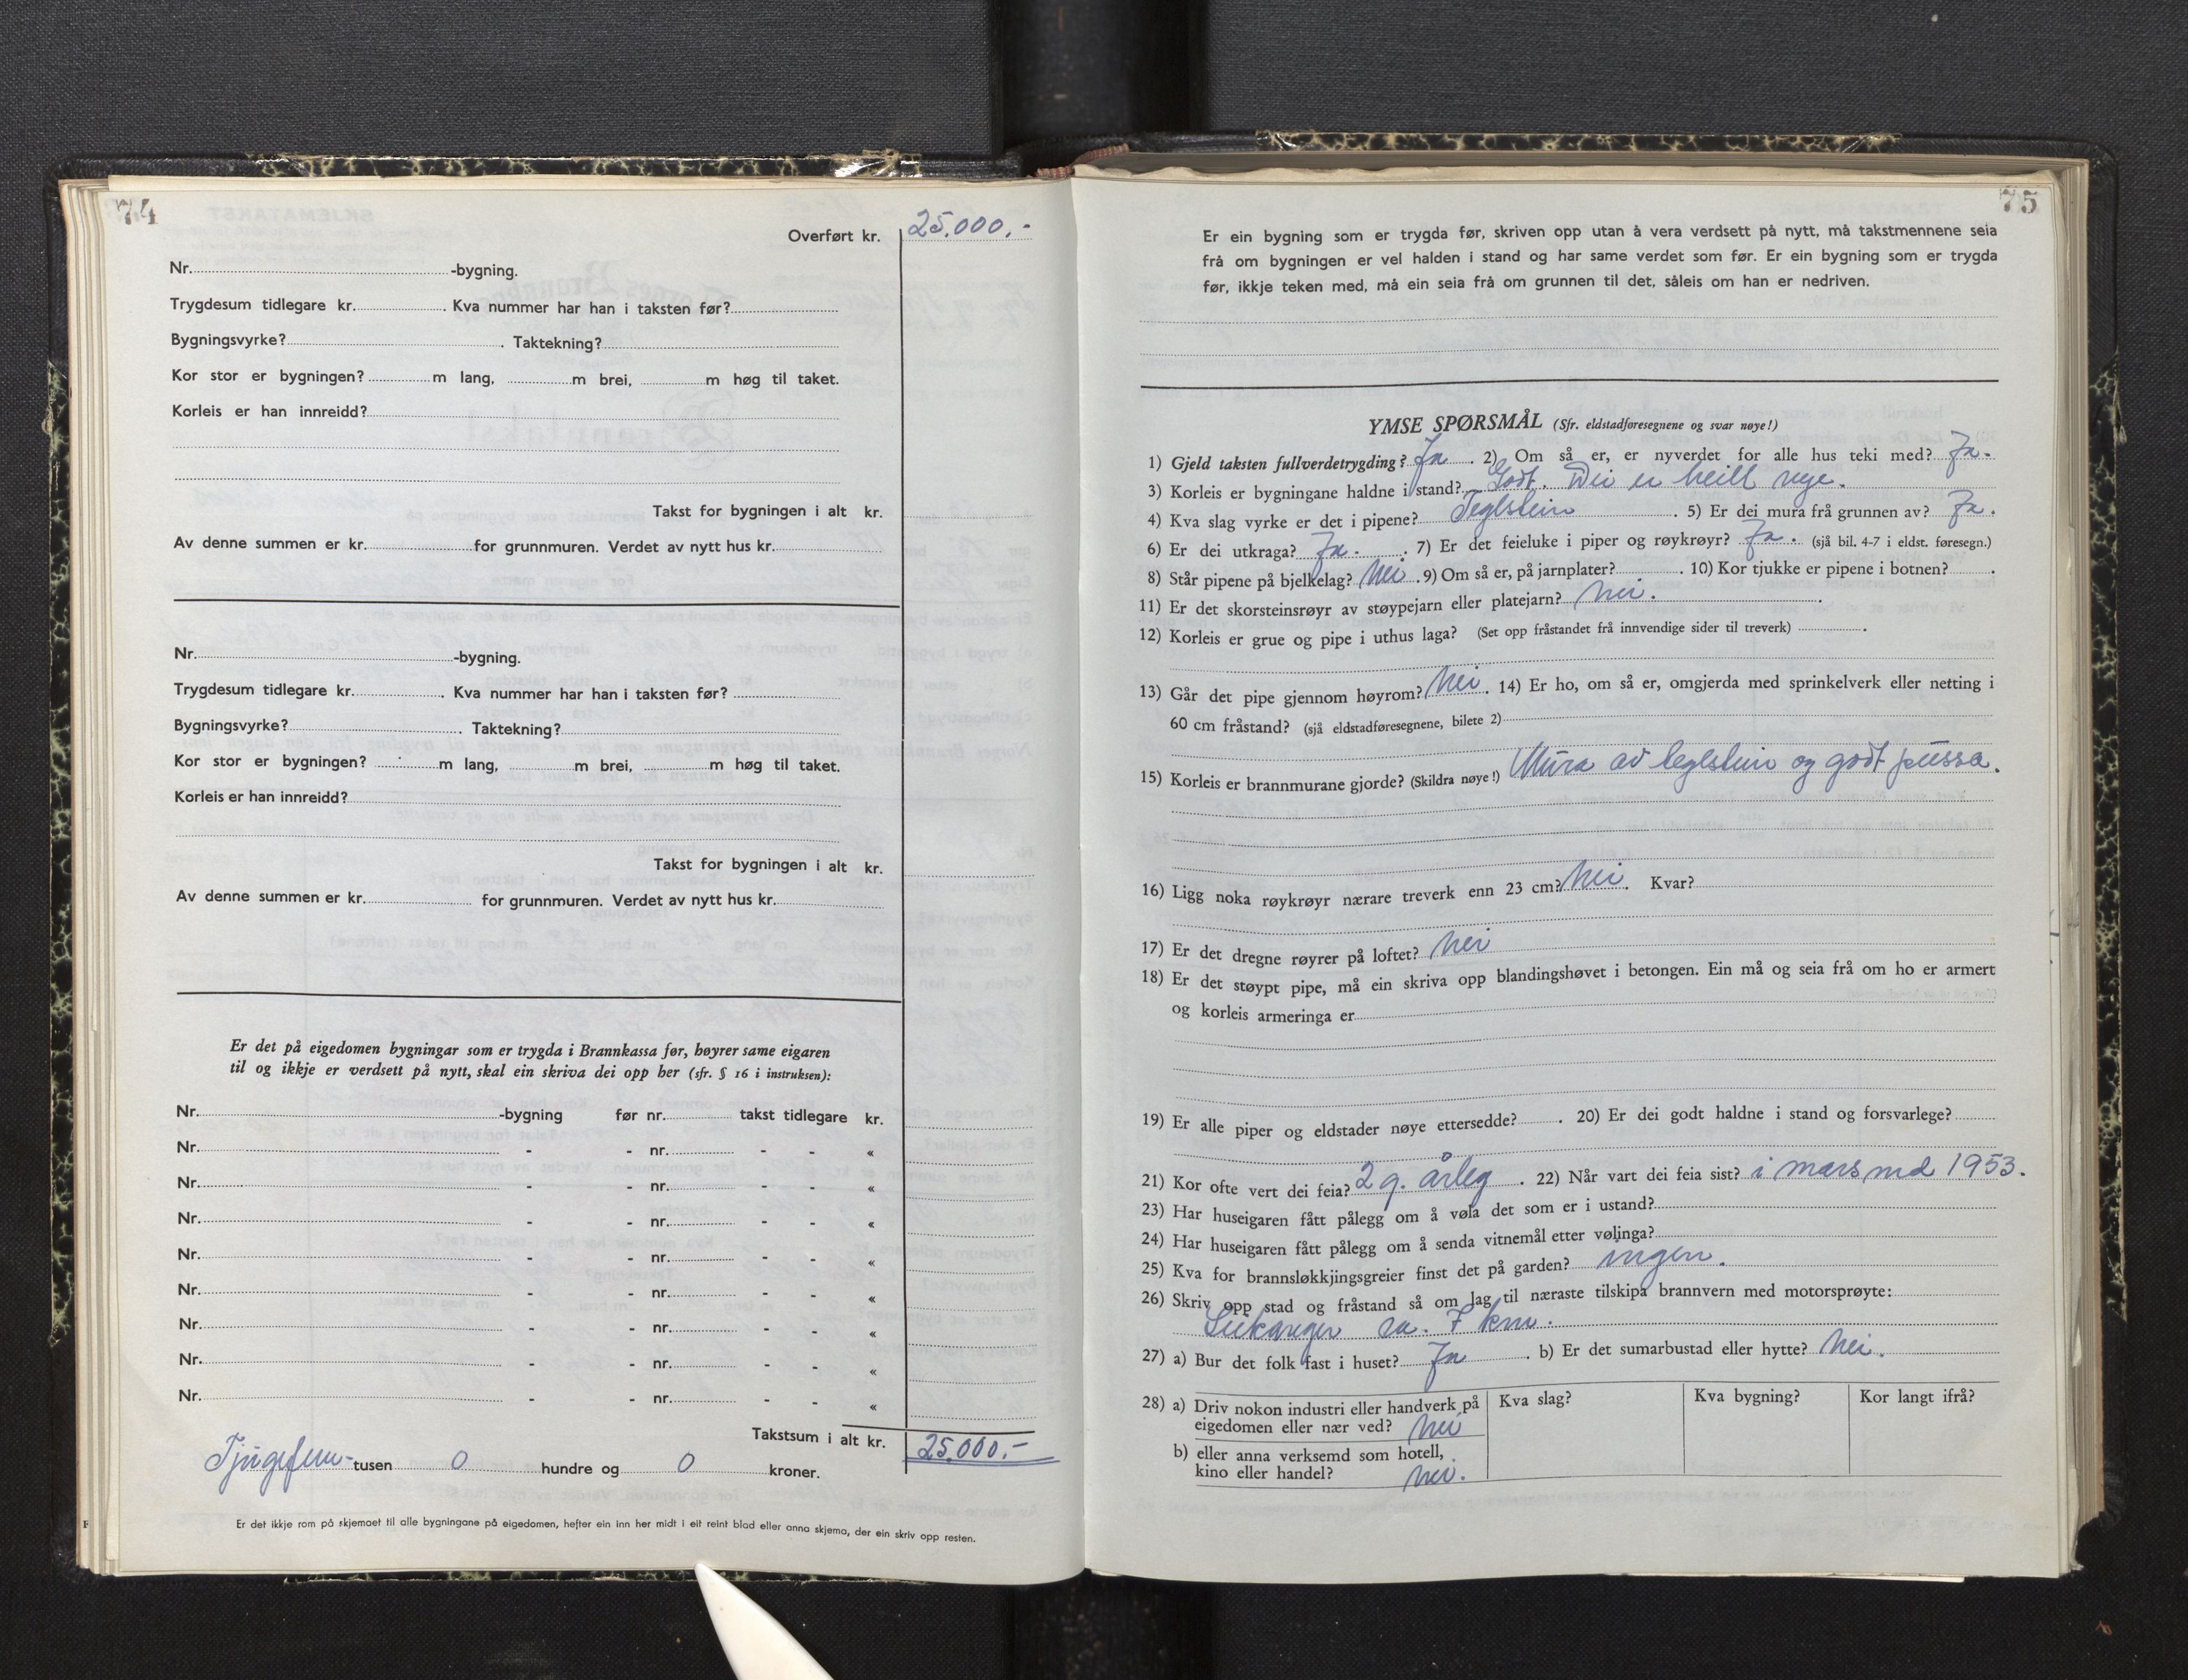 74
Overført kr. 25.000,-
Nr. -bygning.
Trygdesum tidlegare kr. . Kva nummer har han i taksten før?
Bygningsvyrke? . Taktekning?
Kor stor er bygningen? m lang, m brei, m høg til taket.
Korleis er han innreidd?
Takst for bygningen i alt kr.
Av denne summen er kr. for grunnmuren. Verdet av nytt hus kr.
Nr. -bygning.
Trygdesum tidlegare kr. . Kva nummer har han i taksten før?
Bygningsvyrke? . Taktekning?
Kor stor er bygningen? m lang, m brei, m høg til taket.
Korleis er han innreidd?
Takst for bygningen i alt kr.
Av denne summen er kr. for grunnmuren. Verdet av nytt hus kr.
Er det på eigedomen bygningar som er trygda i Brannkassa før, høyrer same eigaren
til og ikkje er verdsett på nytt, skal ein skriva dei opp her (sfr. § 16 i instruksen):
Nr. -bygning før nr. takst tidlegare kr.
Nr. - - nr. - - «
Nr. - - nr. - - «
Nr. - - nr. - - «
Nr. - - nr. - - «
Nr. - - nr. - - «
Nr. - - nr. - - «
Nr. - - nr. - - «
Nr. - - nr. - - «
Takstsum i alt kr. 25.000,-
Tjugefem-tusen 0 hundre og 0 kroner.
Er det ikkje rom på skjemaet til alle bygningane på eigedomen, hefter ein inn her midt i eit reint blad eller anna skjema, der ein skriv opp resten.
75
Er ein bygning som er trygda før, skriven opp utan å vera verdsett på nytt, må takstmennene seia
frå om bygningen er vel halden i stand og har same verdet som før. Er ein bygning som er trygda
før, ikkje teken med, må ein seia frå om grunnen til det, såleis om han er nedriven.
YMSE SPØRSMÅL (Sfr. eldstadføresegnene og svar nøye!)
1) Gjeld taksten fullverdetrygding? Ja . 2) Om så er, er nyverdet for alle hus teki med? Ja.
3) Korleis er bygningane haldne i stand? Godt. Dei er heilt nye.
4) Kva slag vyrke er det i pipene? Teglstein . 5) Er dei mura frå grunnen av? Ja.
6) Er dei utkraga? Ja. . 7) Er det feieluke i piper og røykrøyr? Ja. (sjå bil. 4-7 i eldst. føresegn.)
8) Står pipene på bjelkelag? Nei . 9) Om så er, på jarnplater? . 10) Kor tjukke er pipene i botnen? .
11) Er det skorsteinsrøyr av støypejarn eller platejarn? Nei. .
12) Korleis er grue og pipe i uthus laga? (Set opp fråstandet frå innvendige sider til treverk) .
13) Går det pipe gjennom høyrom? Nei . 14) Er ho, om så er, omgjerda med sprinkelverk eller netting i
60 cm fråstand? (sjå eldstadføresegnene, bilete 2)
15) Korleis er brannmurane gjorde? (Skildra nøye!) Mura av teglstein og godt pussa.
16) Ligg noka røykrøyr nærare treverk enn 23 cm? Nei. Kvar?
17) Er det dregne røyrer på loftet? Nei
18) Er det støypt pipe, må ein skriva opp blandingshøvet i betongen. Ein må og seia frå om ho er armert
og korleis armeringa er
19) Er alle piper og eldstader nøye ettersedde? . 20) Er dei godt haldne i stand og forsvarlege?
21) Kor ofte vert dei feia? 2 g. årleg . 22) Når vart dei feia sist? i mars md 1953.
23) Har huseigaren fått pålegg om å vøla det som er i ustand?
24) Har huseigaren fått pålegg om å senda vitnemål etter vølinga?
25) Kva for brannsløkkjingsgreier finst det på garden? ingen.
26) Skriv opp stad og fråstand så om lag til næraste tilskipa brannvern med motorsprøyte:
Leikanger ca. 7 km.
27) a) Bur det folk fast i huset? Ja . b) Er det sumarbustad eller hytte? Nei.
28) a) Driv nokon industri eller handverk på Kva slag? Kva bygning? Kor langt ifrå?
eigedomen eller nær ved? Nei
b) eller anna verksemd som hotell,
kino eller handel? Nei.